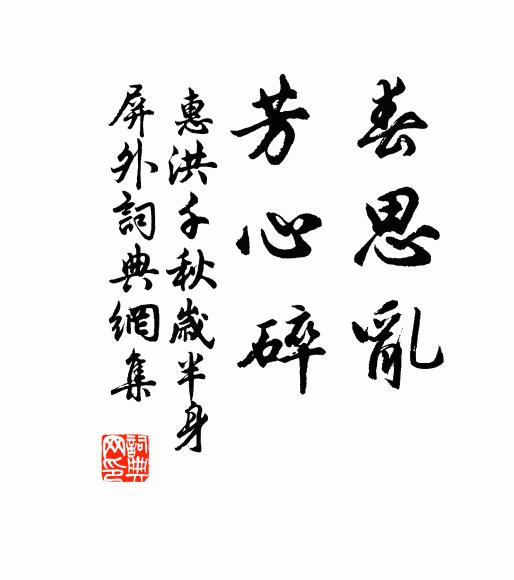 春思亂
芳心碎
惠洪千秋歲半身
屏外詞典網集
詞典
网印